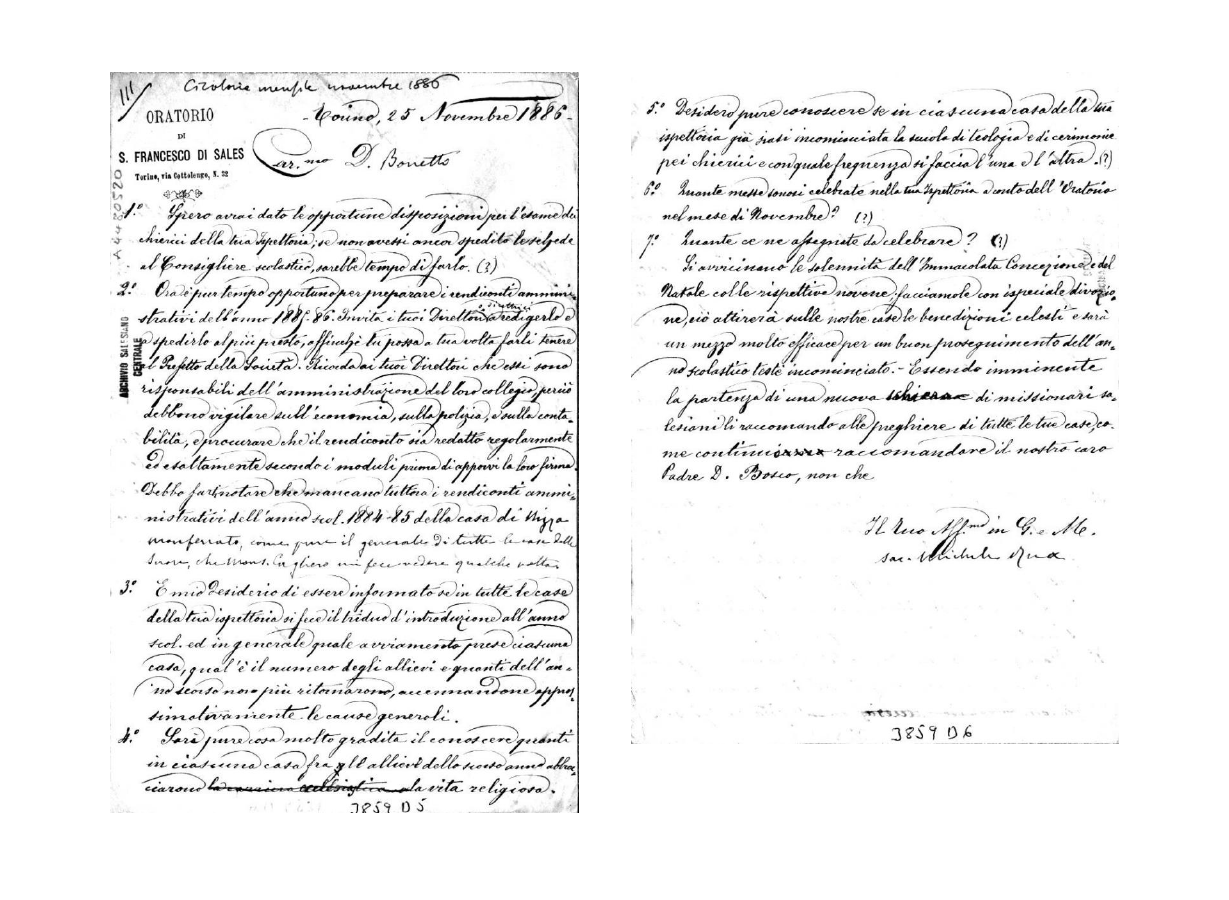 111/ Circolare mensile novembre 1886
ORATORIO
DI
S. FRANCESCO DI SALES
Torino, via Cottolengo, N. 32
Torino, 25 Novembre 1886-
Car.mo D. Bonetto
ARCHIVIO SALESIANO
CENTRALE
1.° Spero avrai dato le opportune disposizioni per l'esame dei
chierici della tua Ispettoria; se non avessi ancor spedito le schede
al Consigliere scolastico, sarebbe tempo di farlo. (?)
2.° Ora è pur tempo opportuno per preparare i rendiconti ammini-
strativi dell'anno 1885-86. Invita i tuoi Direttori a redigerlo e
a spedirlo al più presto, affinchè tu possa a tua volta farli tenere
al Prefetto della Società. Ricorda ai tuoi Direttori che essi sono
risponsabili dell'amministrazione del loro collegio, perciò
debbono vigilare sull'economia, sulla polizia, e sulla conta-
bilità, e procurare che il rendiconto sia redatto regolarmente
ed esattamente secondo i moduli prima di apporvi la loro firma.
Debbo far notare che mancano tuttora i rendiconti ammi-
nistrativi dell'anno scol. 1884-85 della casa di Nizza
monferrato, come pure il generale di tutte le case delle
Suore, che Mons. Cagliero mi fece vedere qualche volta
3.° È mio desiderio di essere informato se in tutte le case
della tua ispettoria si fece il triduo d'introduzione all'anno
scol. ed in generale quale avviamento prese ciascuna
casa, qual'è il numero degli allievi e quanti dell'an-
no scorso non più ritornarono, accennandone appros-
simativamente le cause generali.
4.° Sarà pure cosa molto gradita il conoscere quanti
in ciascuna casa fra gli allievi dello scorso anno abbra-
ciarono la carriera ecclesiastica o la vita religiosa.
3859 D 5
5.° Desidero pure conoscere se in ciascuna casa della tua
ispettoria già siasi incominciata la scuola di teologia e di cerimonie
pei chierici e con quale frequenza si faccia l'una e l'altra. (?)
6.° Quante messe sonosi celebrate nella tua Ispettoria a conto dell'Oratorio
nel mese di Novembre? (?)
7.° Quante ce ne assegnate da celebrare? (?)
Si avvicinano le solennità dell'Immacolata Concezione e del
Natale colle rispettive novene; facciamole con ispeciale divozio-
ne, ciò attirerà sulle nostre case le benedizioni celesti e sarà
un mezzo molto efficace per un buon proseguimento dell'an-
no scolastico testè incominciato.- Essendo imminente
la partenza di una nuova schiera di missionari sa-
lesiani li raccomando alle preghiere di tutte le tue case, co-
me continui raccomandare il nostro caro
Padre D. Bosco, non che
Il tuo Aff.mo in G. e M.
sac. Michele Rua
3859 D 6